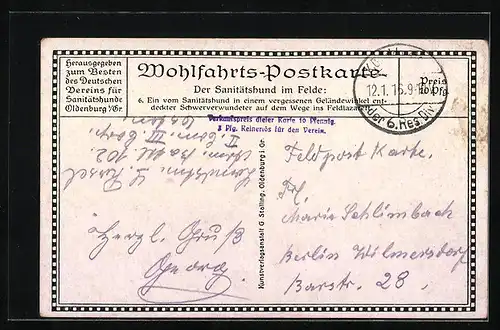 Herausgegeben
zum Besten
des Deutschen
Vereins für
Sanitätshunde
Oldenburg i/Gr.
Wohlfahrts-Postkarte
Der Sanitätshund im Felde:
6. Ein vom Sanitätshund in einem vergessenen Geländewinkel ent-
deckter Schwerverwundeter auf dem Wege ins Feldlazarett
Preis
10 Pfg.
12.1.16.9-
der 6. Res. Div.
Verkaufspreis dieser Karte 10 Pfennig.
3 Pfg. Reinerlös für den Verein.
Herzl. Gruß
Georg
Kunstverlagsanstalt G. Stalling, Oldenburg i. Gr.
Feldpost Karte.
Frl.
Marie Schlimbach
Berlin Wilmersdorf
Barstr. 28.